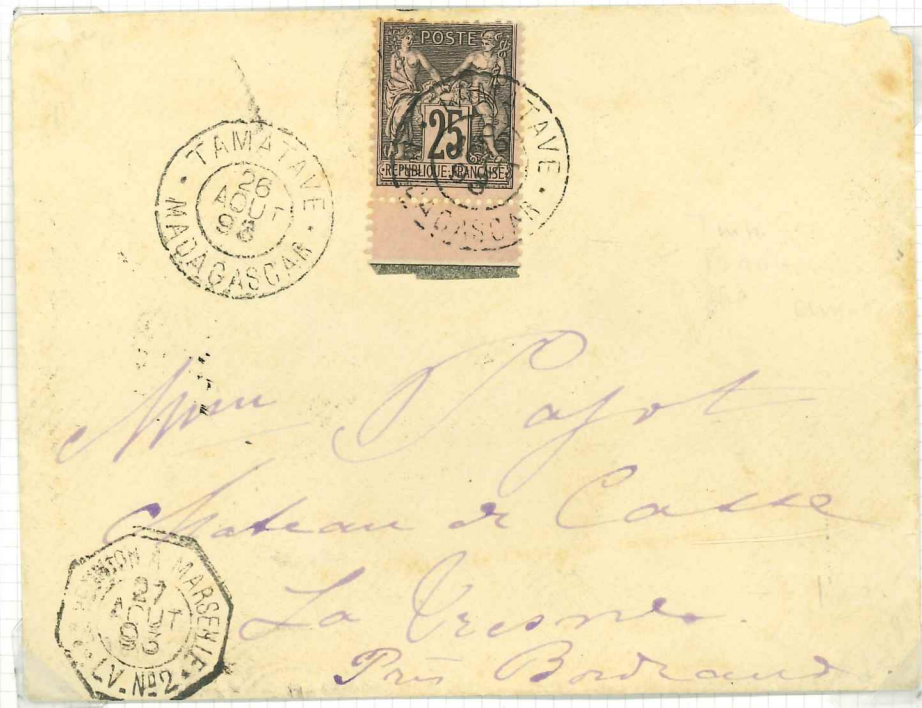 POSTE
25
RÉPUBLIQUE FRANÇAISE
TAMATAVE
MADAGASCAR
26
AOUT
93
TAVE
MADAGASCAR
Mme Pajot
Chateau de Casse
La Tresne
Près Bordeaux
REUNION A MARSEILLE
27
AOUT
93
LV. No2